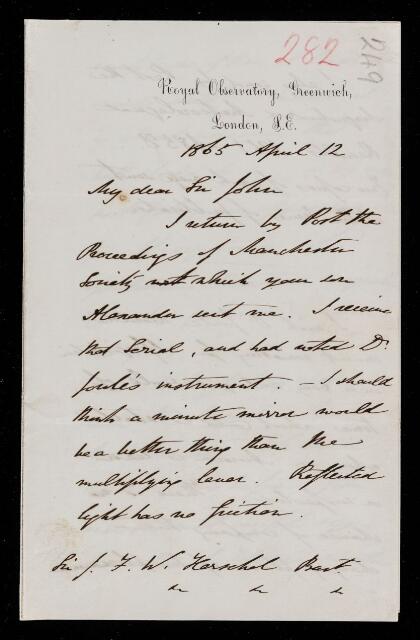 282
249
Royal Observatory, Greenwich,
London, S.E.
1865 April 12
My dear Sir John
I return by Post the
Proceedings of Manchester
Society which your son
Alexander sent me. I receive
that Serial, and had noted Dr.
Joule's instrument. — I should
think a minute mirror would
be a better thing than the
multiplying lever. Reflected
light has no friction.
Sir J. F. W. Herschel Bart.